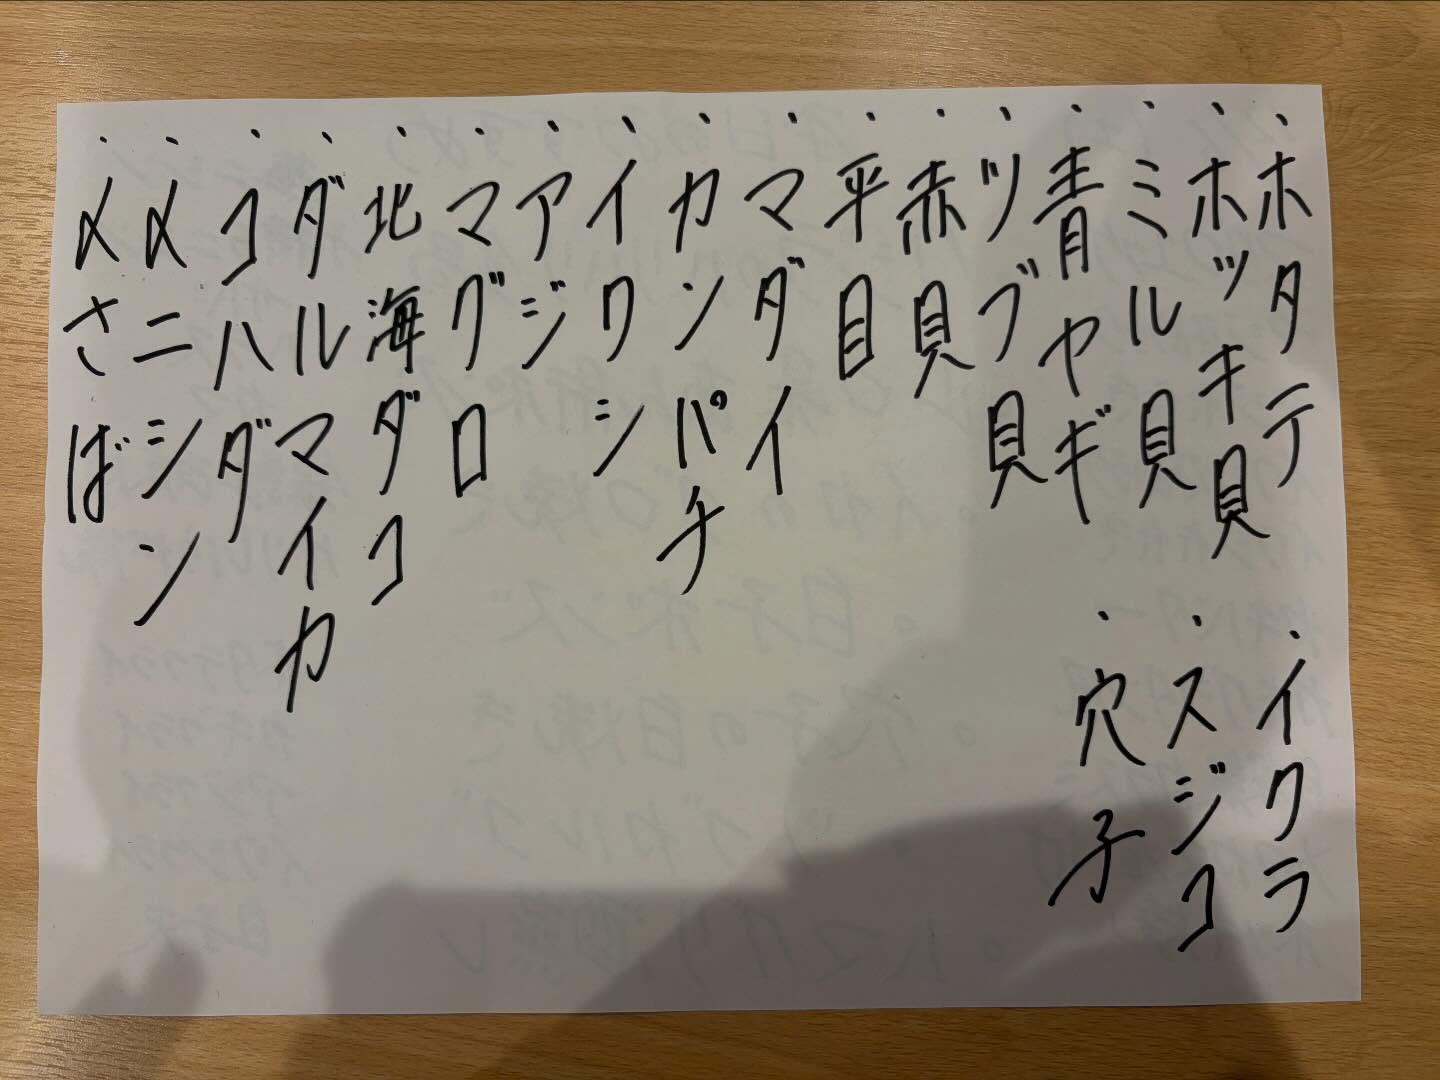 ・ホタテ
・ホッキ貝
・ミル貝
・青ヤギ
・ツブ貝
・赤貝
・平目
・マダイ
・カンパチ
・イワシ
・アジ
・マグロ
・北海ダコ
・ダルマイカ
・コハダ
・〆ニシン
・〆さば
・イクラ
・スジコ
・穴子